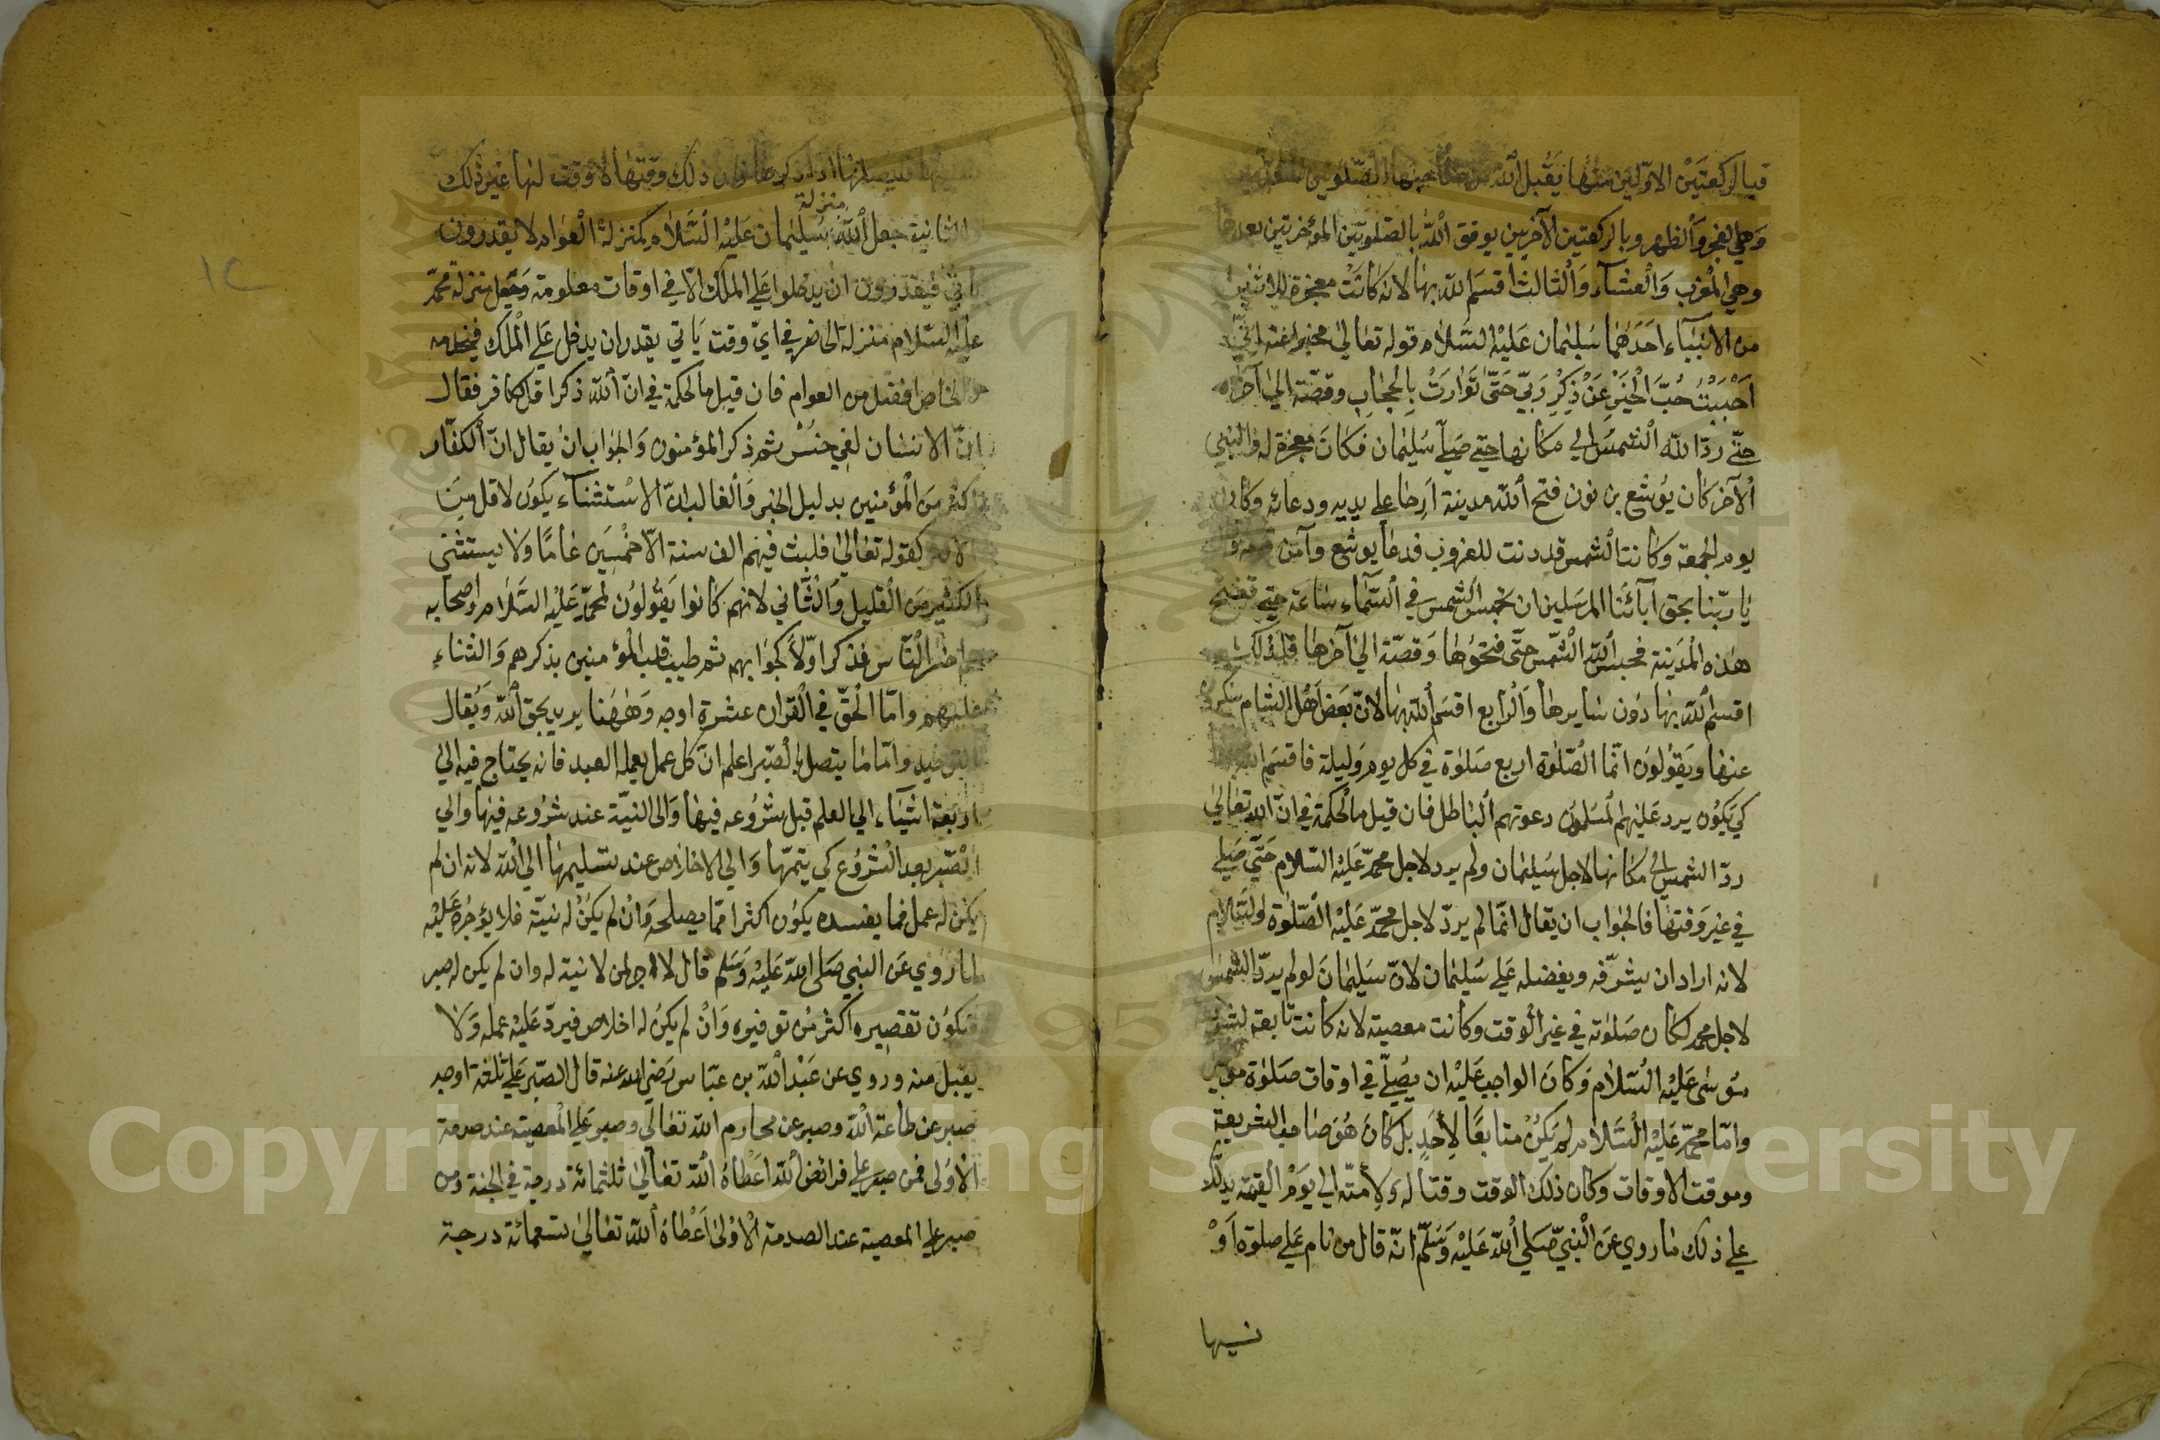 فبالركعتين الاولين منها يقبل الله الصلوتين
وهي الفجر والظهر وبالركعتين الآخريين يوفق الله بالصلويتين المؤخرتين بعدها
وهي المغرب والعشاء والثالث اقسم الله بها لانه كانت معجزة للاثنين
من الانبياء احدهما سليمان عليه السلام قوله تعالى مخبرا عنه اني
احببت حب الخير عن ذكر ربي حتى توارت بالحجاب وقصته الي آخره
حتى ردّ الله الشمس الي مكانها حتي صلى سليمان فكان معجزة له والنبي
الآخر كان يوشع بن نون فتح الله مدينة اريحا علي يديه ودعائه وكان
يوم الجمعة وكانت الشمس قد دنت للغروب فدعا يوشع وآمن قومه و
يا ربنا بحق آبائنا المرسلين ان تحبس الشمس في السماء ساعة حتي تفتح
هذه المدينة فحبس الله الشمس حتى فتحوها وقصته الي آخرها فلذلك
اقسم الله بها دون سايرها والرابع اقسم الله بها لان بعض اهل الشام
عنها ويقولون انما الصلوة اربع صلوة في كل يوم وليلة فاقسم الله
كي يكون يرد عليهم المسلمون دعوتهم الباطل فان قيل ما الحكمة في ان الله تعالي
ردّ الشمس الي مكانها لاجل سليمان ولم يرد لاجل محمد عليه السلام حتى صلى
في غير وقتها فالجواب ان يقال انما لم يردّ لاجل محمد عليه الصلوة والسلام
لانه اراد ان يشرّفه ويفضله علي سليمان لان سليمان لو لم يردّ الشمس
لاجل محمد لكان صلوته في غير الوقت وكانت معصية لانه كانت تابعة
موسى عليه السلام وكان الواجب عليه ان يصلّي في اوقات صلوة موسى
واما محمد عليه السلام لم يكن متابعا لأحد بل كان هو صاحب الشريعة
وموقت الاوقات وكان ذلك الوقت وقتا له ولأمته الي يوم القيمة يدل
علي ذلك ما روي عن النبي صلى الله عليه وسلم انه قال من نام على صلوة او
نسيها
فليصلها اذا ذكرها فان ذلك وقتها لا وقت لها غير ذلك
منزلة
الثانية جعل الله سليمان عليه السلام كمنزلة العوام لا يقدرون
فيقدرون ان يدخلوا علي الملك الا في اوقات معلومة وجعل منزلة محمد
عليه السلام منزلة الخاص في اي وقت ياتي يقدر ان يدخل علي الملك فيخدمه
الخاص افضل من العوام فان قيل ما الحكمة في ان الله ذكر اول كافر فقال
انّ الانسان لفي خسر ثم ذكر المؤمنون والجواب ان يقال انّ الكفار
اكثر من المؤمنين بدليل الخبر والغالب ان الاستثناء يكون لاقل من
كقوله تعالي فلبث فيهم الف سنة الا خمسين عاما ولا يستثنى
الكثير من القليل والثاني لانهم كانوا يقولون لمحمد عليه السلام واصحابه
الناس فذكر اولا كجوابهم ثم طيب قلب المؤمنين بذكرهم والثناء
عليهم واما الحق في القران عشرة اوجه وههنا يريد بحق الله ويقال
التوحيد واما ما يتصل بالصبر اعلم ان كل عمل يعمله العبد فانه يحتاج فيه الي
اربعة اشياء الي العلم قبل شروعه فيها والى النية عند شروعه فيها والي
الصبر بعد الشروع كي يتمها والي الاخلاص عند تسليمها الي الله لانه ان لم
يكن له عمل فما يفسده يكون اكثر مما يصلحه وان لم يكن له نية فلا يؤجر عليه
لما روي عن النبي صلى الله عليه وسلم قال لا اجر لمن لا نية له وان لم يكن له صبر
فيكون تقصيره اكثر من توفيره وان لم يكن له اخلاص فيردّ عليه عمله ولا
يقبل منه وروي عن عبد الله بن عباس رضي الله عنه قال الصبر على ثلثة اوجه
صبر عن طاعة الله وصبر عن محارم الله تعالي وصبر علي المعصية عند صدمة
الاولى فمن صبر علي فرائض الله اعطاه الله تعالي ثلثمائة درجة في الجنة ومن
صبر علي المعصية عند الصدمة الاولى اعطاه الله تعالي تسعمائة درجة
١٢
Copyright © King Saud University